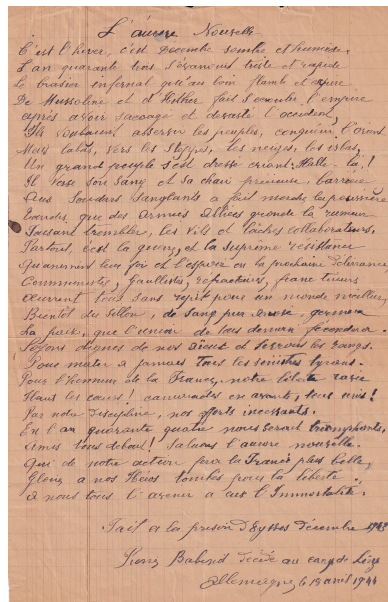 L'aurore Nouvelle
C'est l'hiver, c'est Decembre sombre et
L'an quarante trois s'évanoui triste et rapide
Le brasier infernal qu'au loin flambe et expire
De Mussoline et d'Hitler fait s'écrouler l'empire
après avoir saccagé et devasté l'occident,
Ils voulaient asservir les peuples, conquérir l'orient
Mais là bas, vers les Steppes, les neiges, les
Un grand peuple s'est dressé criant Halte-là!
Il verse son sang et sa chair précieuse,
Aux Soudres Sanglants a fait mordre la poussière
Tandis que des Armées Alliées gronde la rumeur
Faisant trembler, les vils et lâches collaborateurs,
Partout, c'est la guerre, et la suprème résistance
leur foi et l'espoir en la prochaine délivrance
Communistes, Gaullistes, réfractaires, franc tireurs
Œuvrent tous sans répit pour un monde meilleur
Bientôt du sillon, de sang pur arrosé, germera
La paix, que l'union de tous demain fécondera.
Soyons dignes de nos aieux et serrons les rangs.
Pour mater à jamais tous les sinistres tyrans.
Pour l'Honneur de la France, notre liberté ravie
Hauts les cœurs! camarades en avant, tous unis!
Par notre Discipline, nos efforts incessants.
En l'an quarante quatre nous serons triomphants,
Amis tous debout! Saluons l'aurore nouvelle.
Qui de notre action fera la France plus belle,
Gloire a nos Héros tombés pour la liberté.
A nous tous l'avenir a eux l'Immortalité.
Fait a la prison d'Eysses décembre 1943
décédé au camp de
Allemagne, le 18 avril 1944